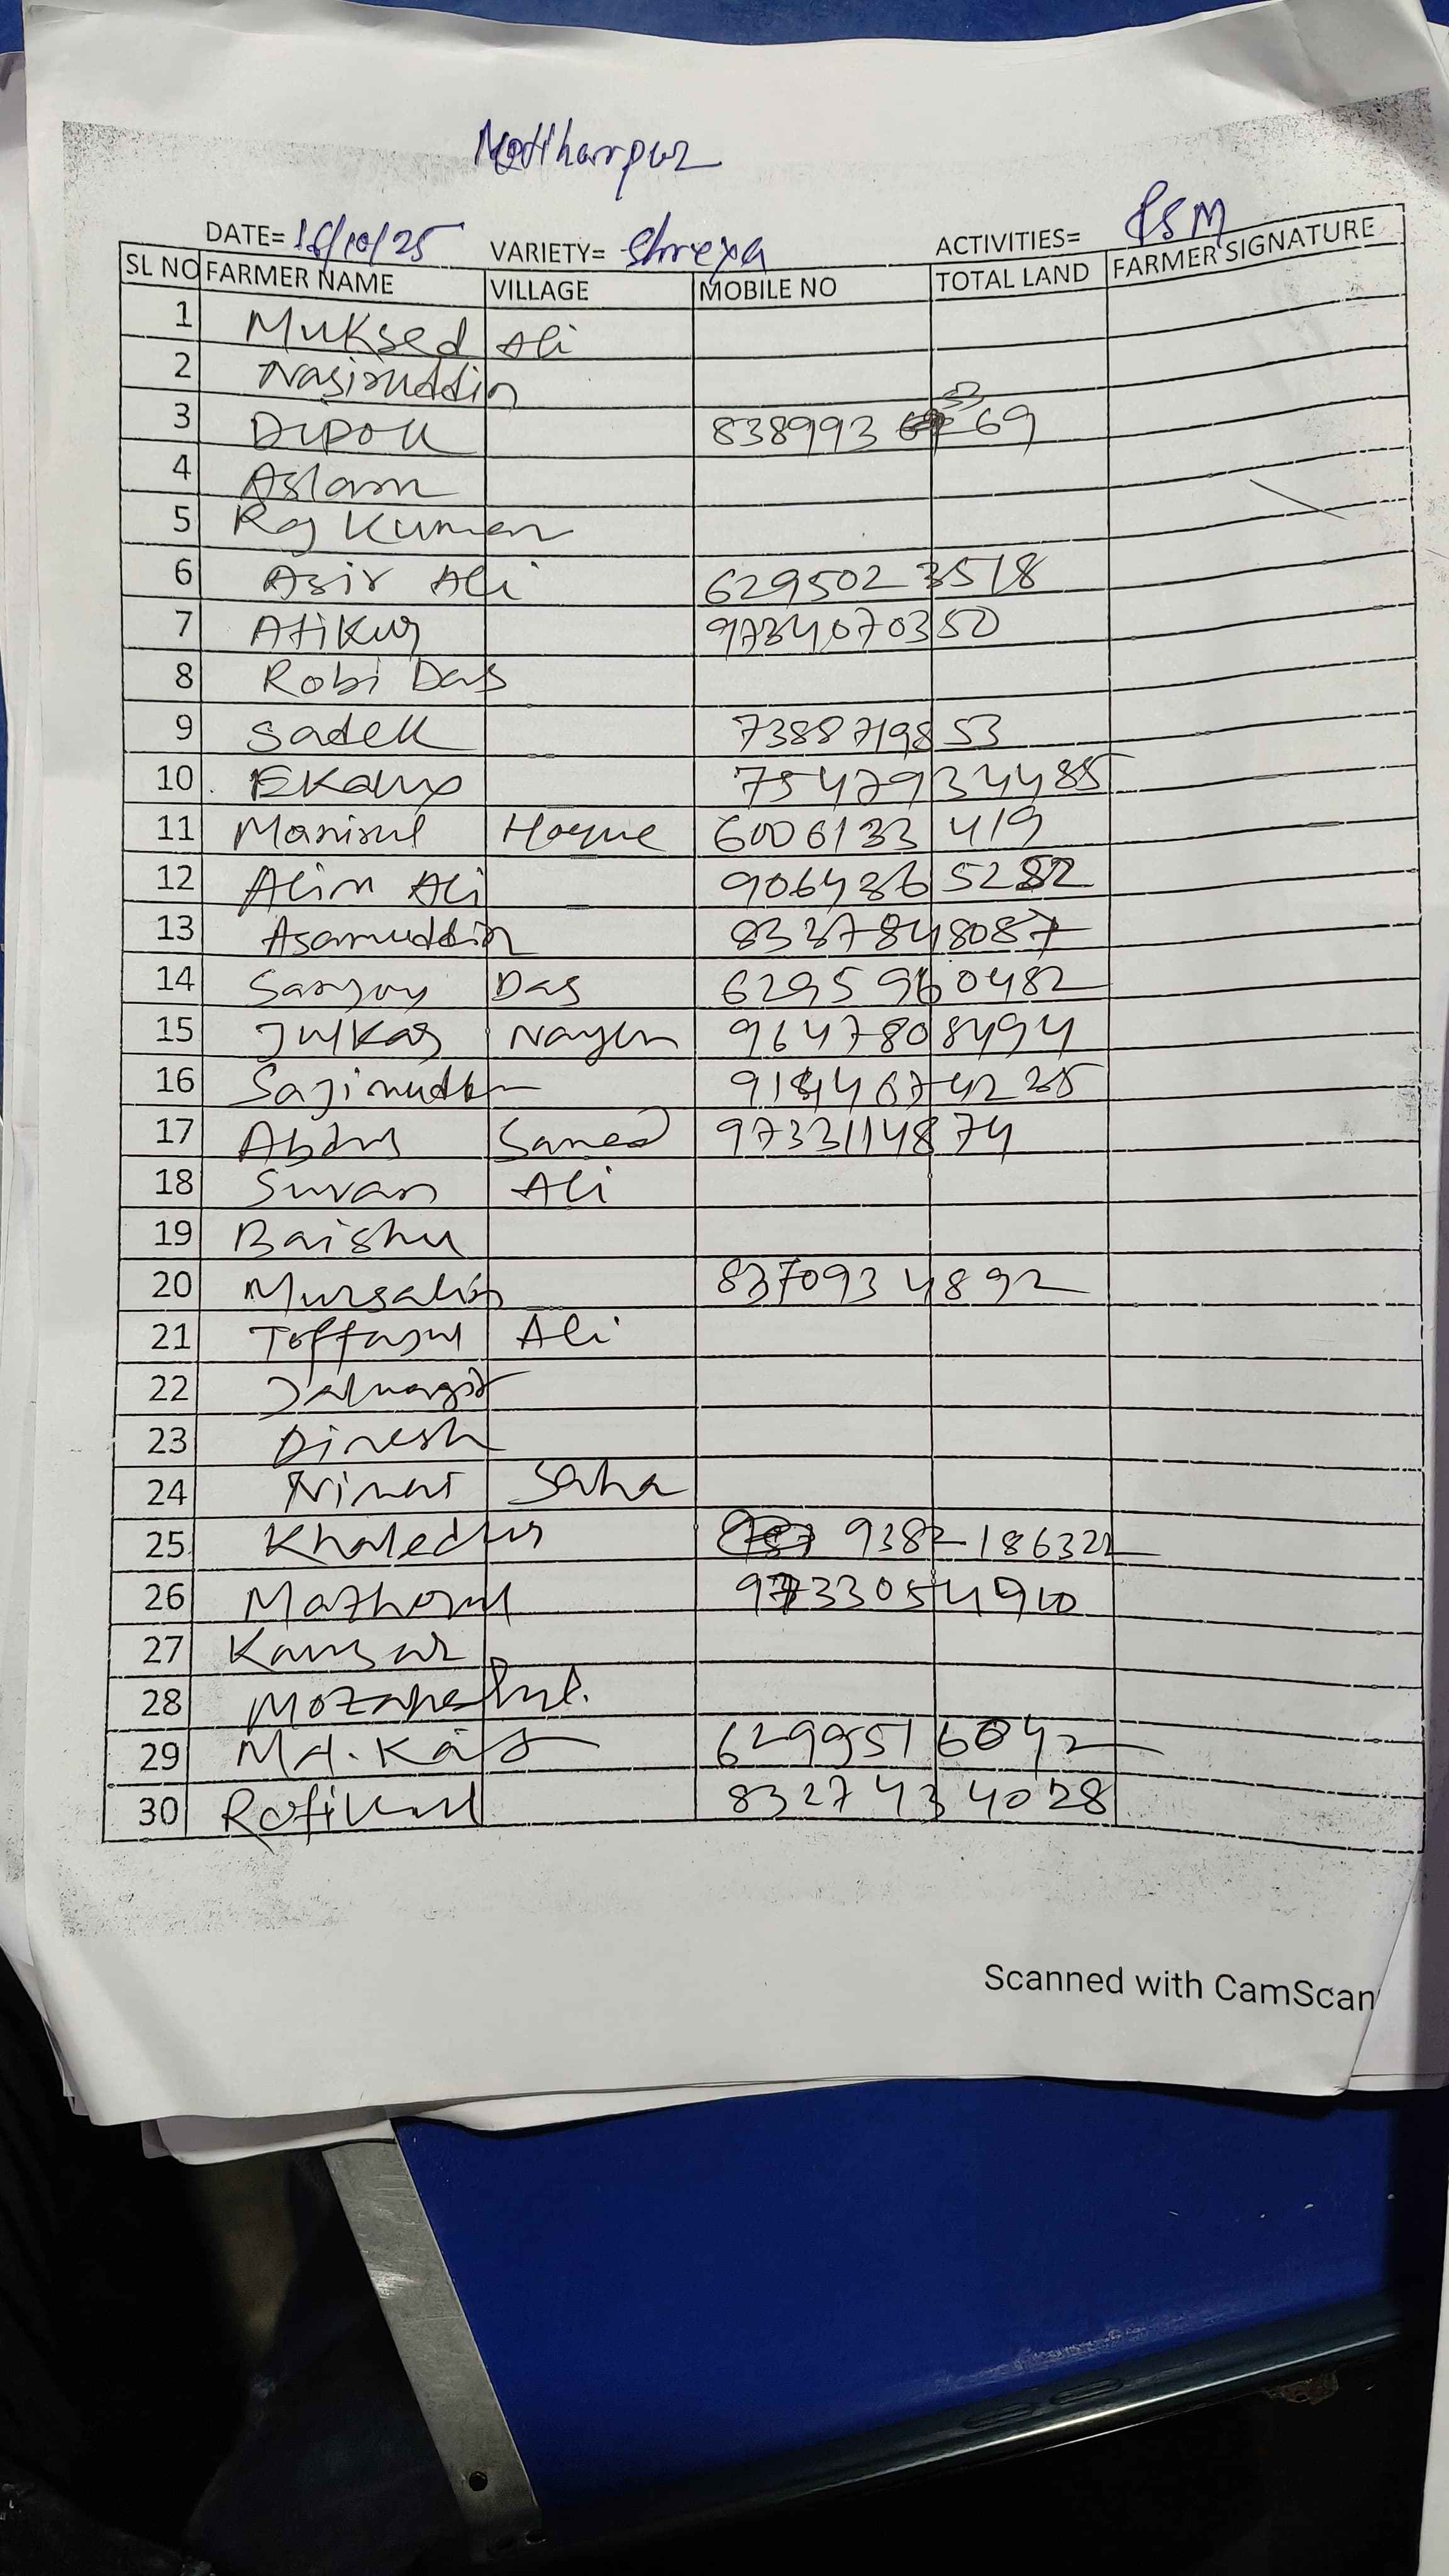 DATE= 16/10/25 VARIETY= Shrexa ACTIVITIES= PSM
SL NO FARMER NAME VILLAGE MOBILE NO TOTAL LAND FARMER SIGNATURE
1 Muksed Ali
2 Nasiruddin
3 Dipok 838993 53 69
4 Aslam
5 Raj Kumar
6 Asir Ali 6295023518
7 Atikur 9734070350
8 Robi Das
9 Sadek 7388719853
10 Ekamp 7547934485
11 Manirul Hoque 6006133419
12 Alim Ali 9064365282
13 Asamuddin 8337848087
14 Sanjoy Das 6295960482
15 Julkar Nayen 9647808494
16 Sajimuddin
17 Abdus Samed 9733114874
18 Suvan Ali
19 Baishu
20 Mursalin 8370934892
21 Toffajul Ali
22
23 Dinesh
24 Nimai Saha
25 Khaledur 9382186322
26 Mazhorul 9733054910
27 Kausar
28
29 Md. 6299516042
30 Rofikul 8327434028
Scanned with CamScan